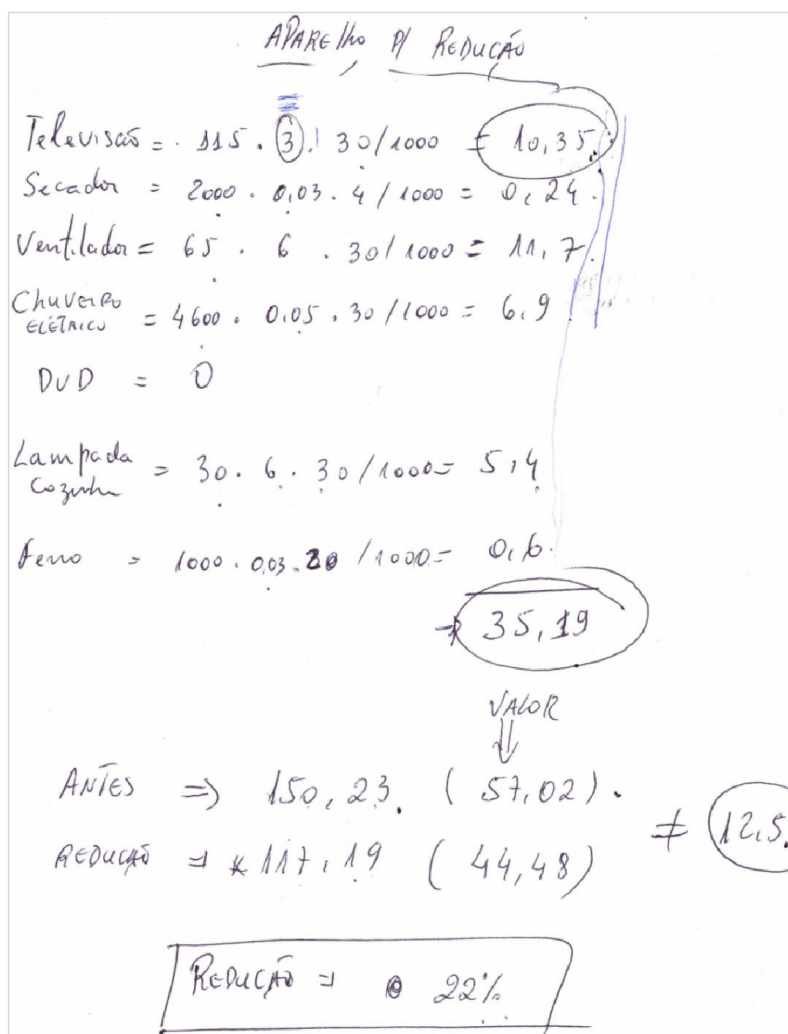 APARElho P/ REDUÇÃO
Televisão = 115 . 3 . 30/1000 = 10,35
Secador = 2000 . 0,03 . 4/1000 = 0,24
Ventilador = 65 . 6 . 30/1000 = 11,7
Chuveiro
ELÉTRICO = 4600 . 0,05 . 30/1000 = 6,9
DVD = 0
Lampada
Cozinha = 30 . 6 . 30/1000 = 5,4
Ferro = 1000 . 0,03 . 20/1000 = 0,6
35,19
VALOR
ANTES => 150,23 (57,02)
REDUÇÃO = 117,19 (44,48) ≠ 12,5
REDUÇÃO = 22%